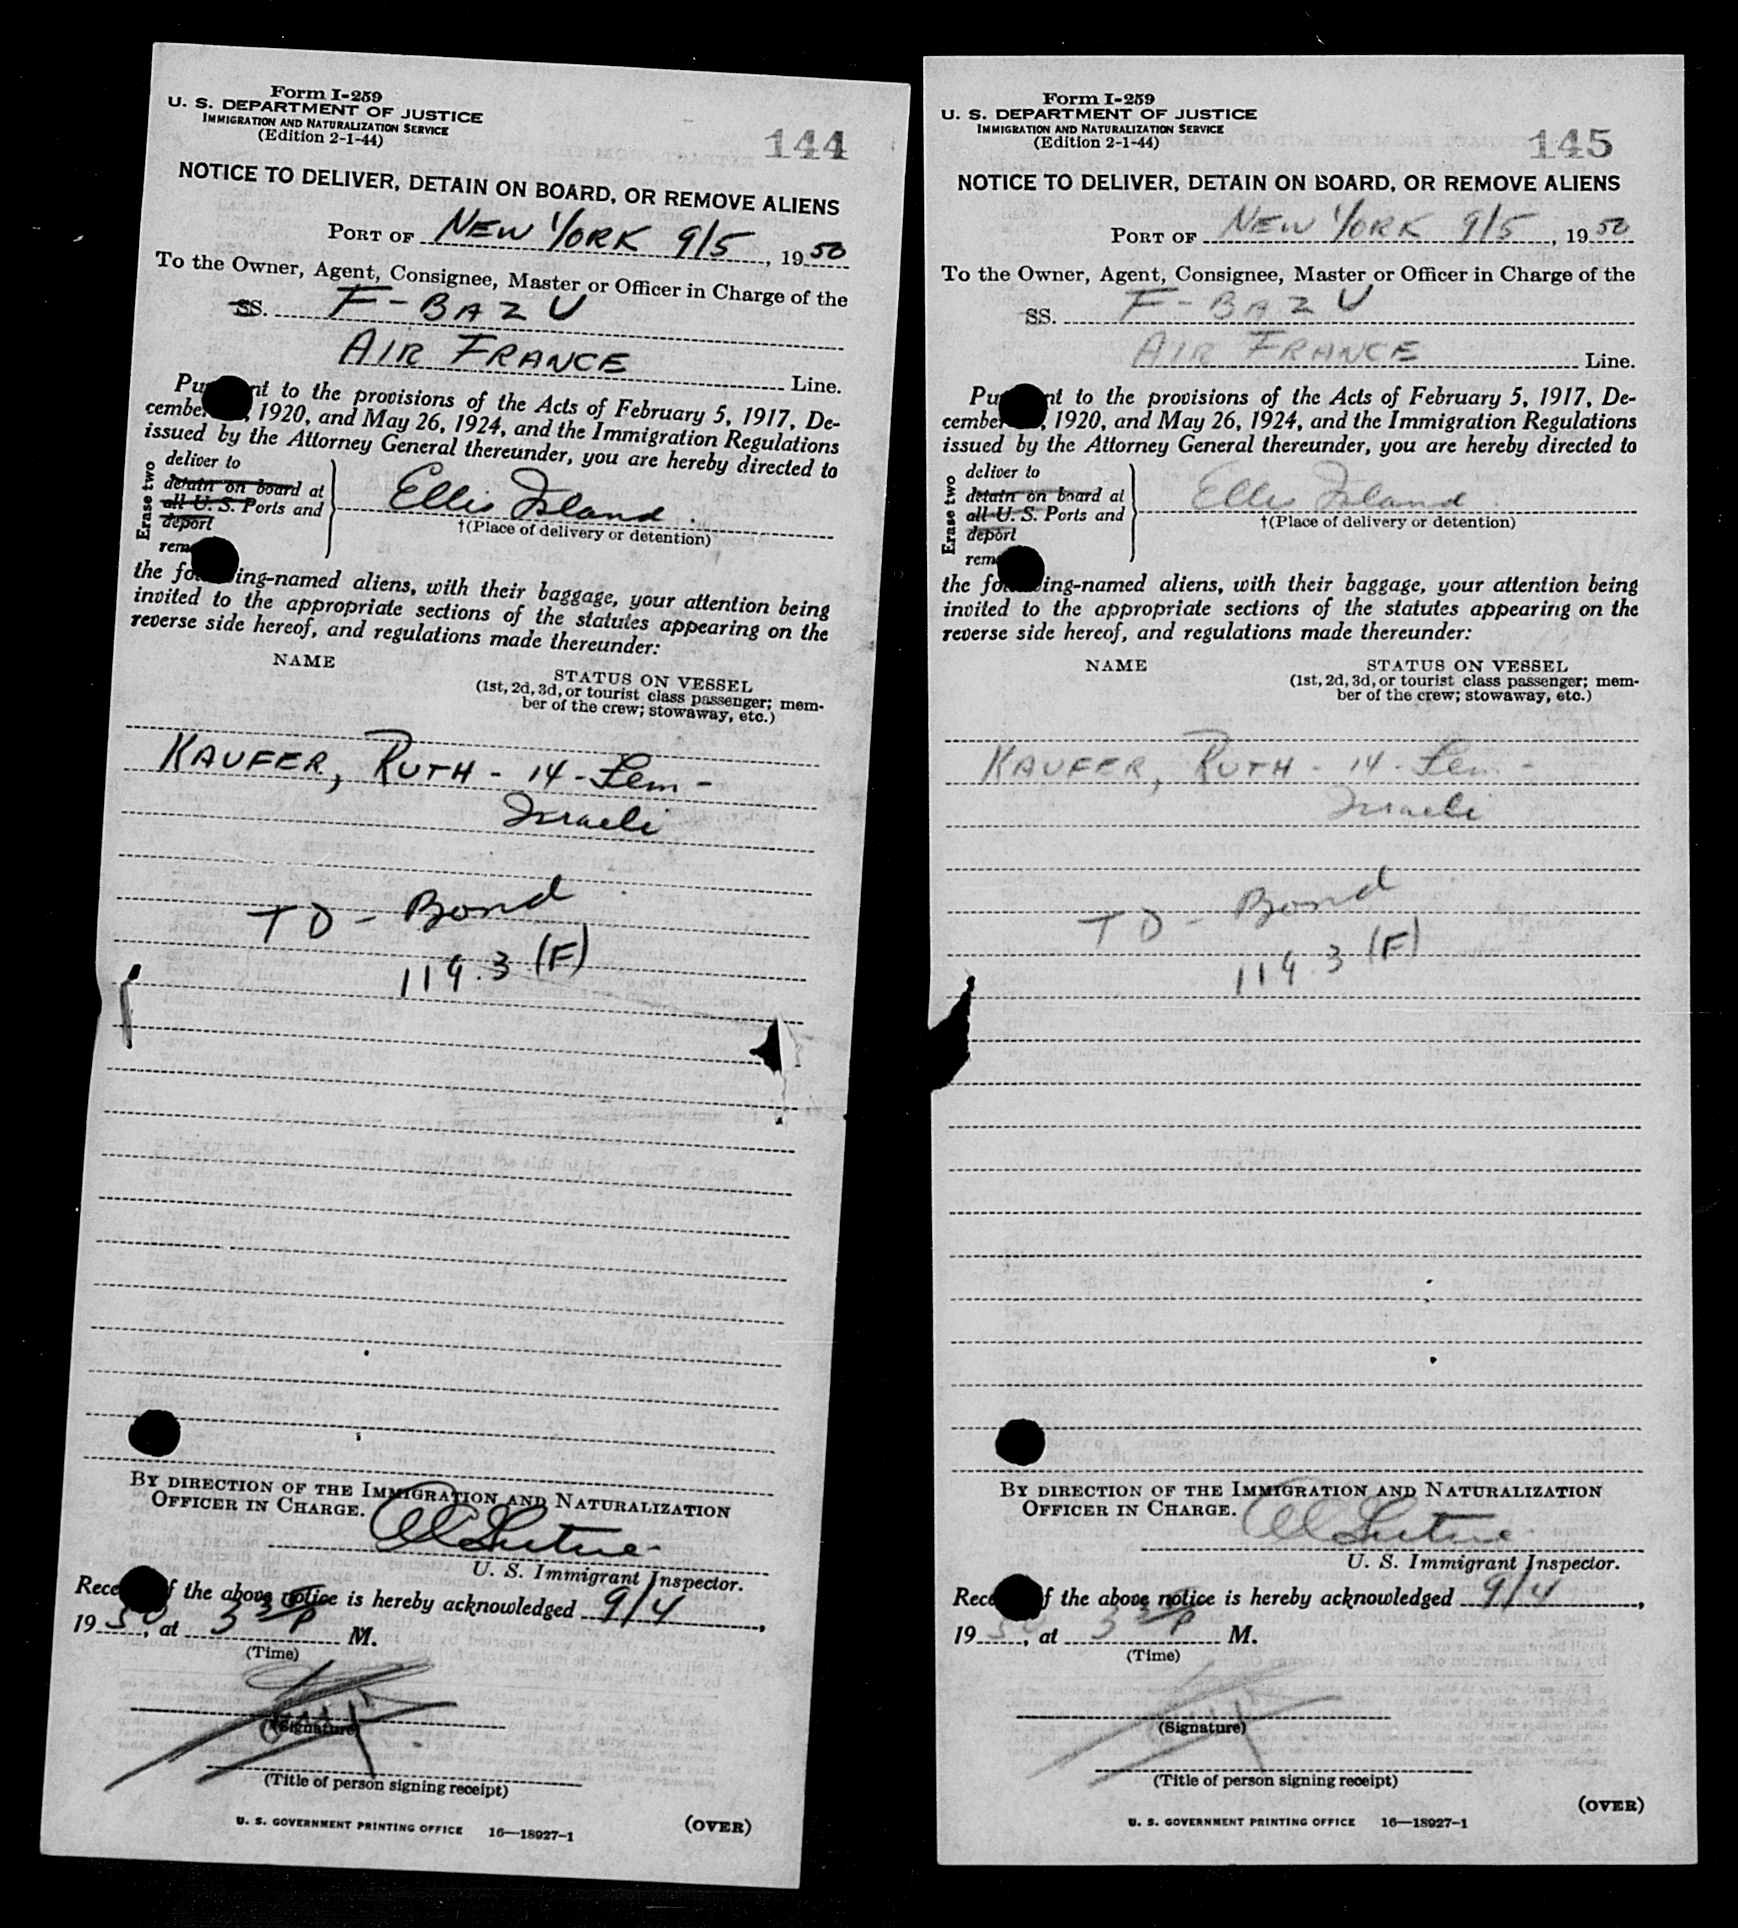 Form I-259
U. S. DEPARTMENT OF JUSTICE
IMMIGRATION AND NATURALIZATION SERVICE
(Edition 2-1-44)
144
NOTICE TO DELIVER, DETAIN ON BOARD, OR REMOVE ALIENS
PORT OF NEW YORK 9/5, 1950
To the Owner, Agent, Consignee, Master or Officer in Charge of the
SS. F-BAZU
AIR FRANCE Line.
Pu nt to the provisions of the Acts of February 5, 1917, De-
cember , 1920, and May 26, 1924, and the Immigration Regulations
issued by the Attorney General thereunder, you are hereby directed to
Erase two
deliver to
detain on board at
all U. S. Ports and
deport
rem
Ellis Island
†(Place of delivery or detention)
the fo ing-named aliens, with their baggage, your attention being
invited to the appropriate sections of the statutes appearing on the
reverse side hereof, and regulations made thereunder:
NAME
STATUS ON VESSEL
(1st, 2d, 3d, or tourist class passenger; mem-
ber of the crew; stowaway, etc.)
KAUFER, RUTH - 14 - Fem -
Israeli
TD - Bond
119.3 (F)
BY DIRECTION OF THE IMMIGRATION AND NATURALIZATION
OFFICER IN CHARGE.
U. S. Immigrant Inspector.
Rece f the above notice is hereby acknowledged 9/4,
1950, at 3 30 P M.
(Time)
(Signature)
(Title of person signing receipt)
U. S. GOVERNMENT PRINTING OFFICE 16—18927-1
(OVER)
Form I-259
U. S. DEPARTMENT OF JUSTICE
IMMIGRATION AND NATURALIZATION SERVICE
(Edition 2-1-44)
145
NOTICE TO DELIVER, DETAIN ON BOARD, OR REMOVE ALIENS
PORT OF NEW YORK 9/5, 1950
To the Owner, Agent, Consignee, Master or Officer in Charge of the
SS. F-BAZU
AIR FRANCE Line.
Pu nt to the provisions of the Acts of February 5, 1917, De-
cember , 1920, and May 26, 1924, and the Immigration Regulations
issued by the Attorney General thereunder, you are hereby directed to
Erase two
deliver to
detain on board at
all U. S. Ports and
deport
rem
Ellis Island
†(Place of delivery or detention)
the fo ing-named aliens, with their baggage, your attention being
invited to the appropriate sections of the statutes appearing on the
reverse side hereof, and regulations made thereunder:
NAME
STATUS ON VESSEL
(1st, 2d, 3d, or tourist class passenger; mem-
ber of the crew; stowaway, etc.)
KAUFER, RUTH - 14 - Fem -
Israeli
TD - Bond
119.3 (F)
BY DIRECTION OF THE IMMIGRATION AND NATURALIZATION
OFFICER IN CHARGE.
U. S. Immigrant Inspector.
Rece f the above notice is hereby acknowledged 9/4,
1950, at 3 30 P M.
(Time)
(Signature)
(Title of person signing receipt)
U. S. GOVERNMENT PRINTING OFFICE 16—18927-1
(OVER)